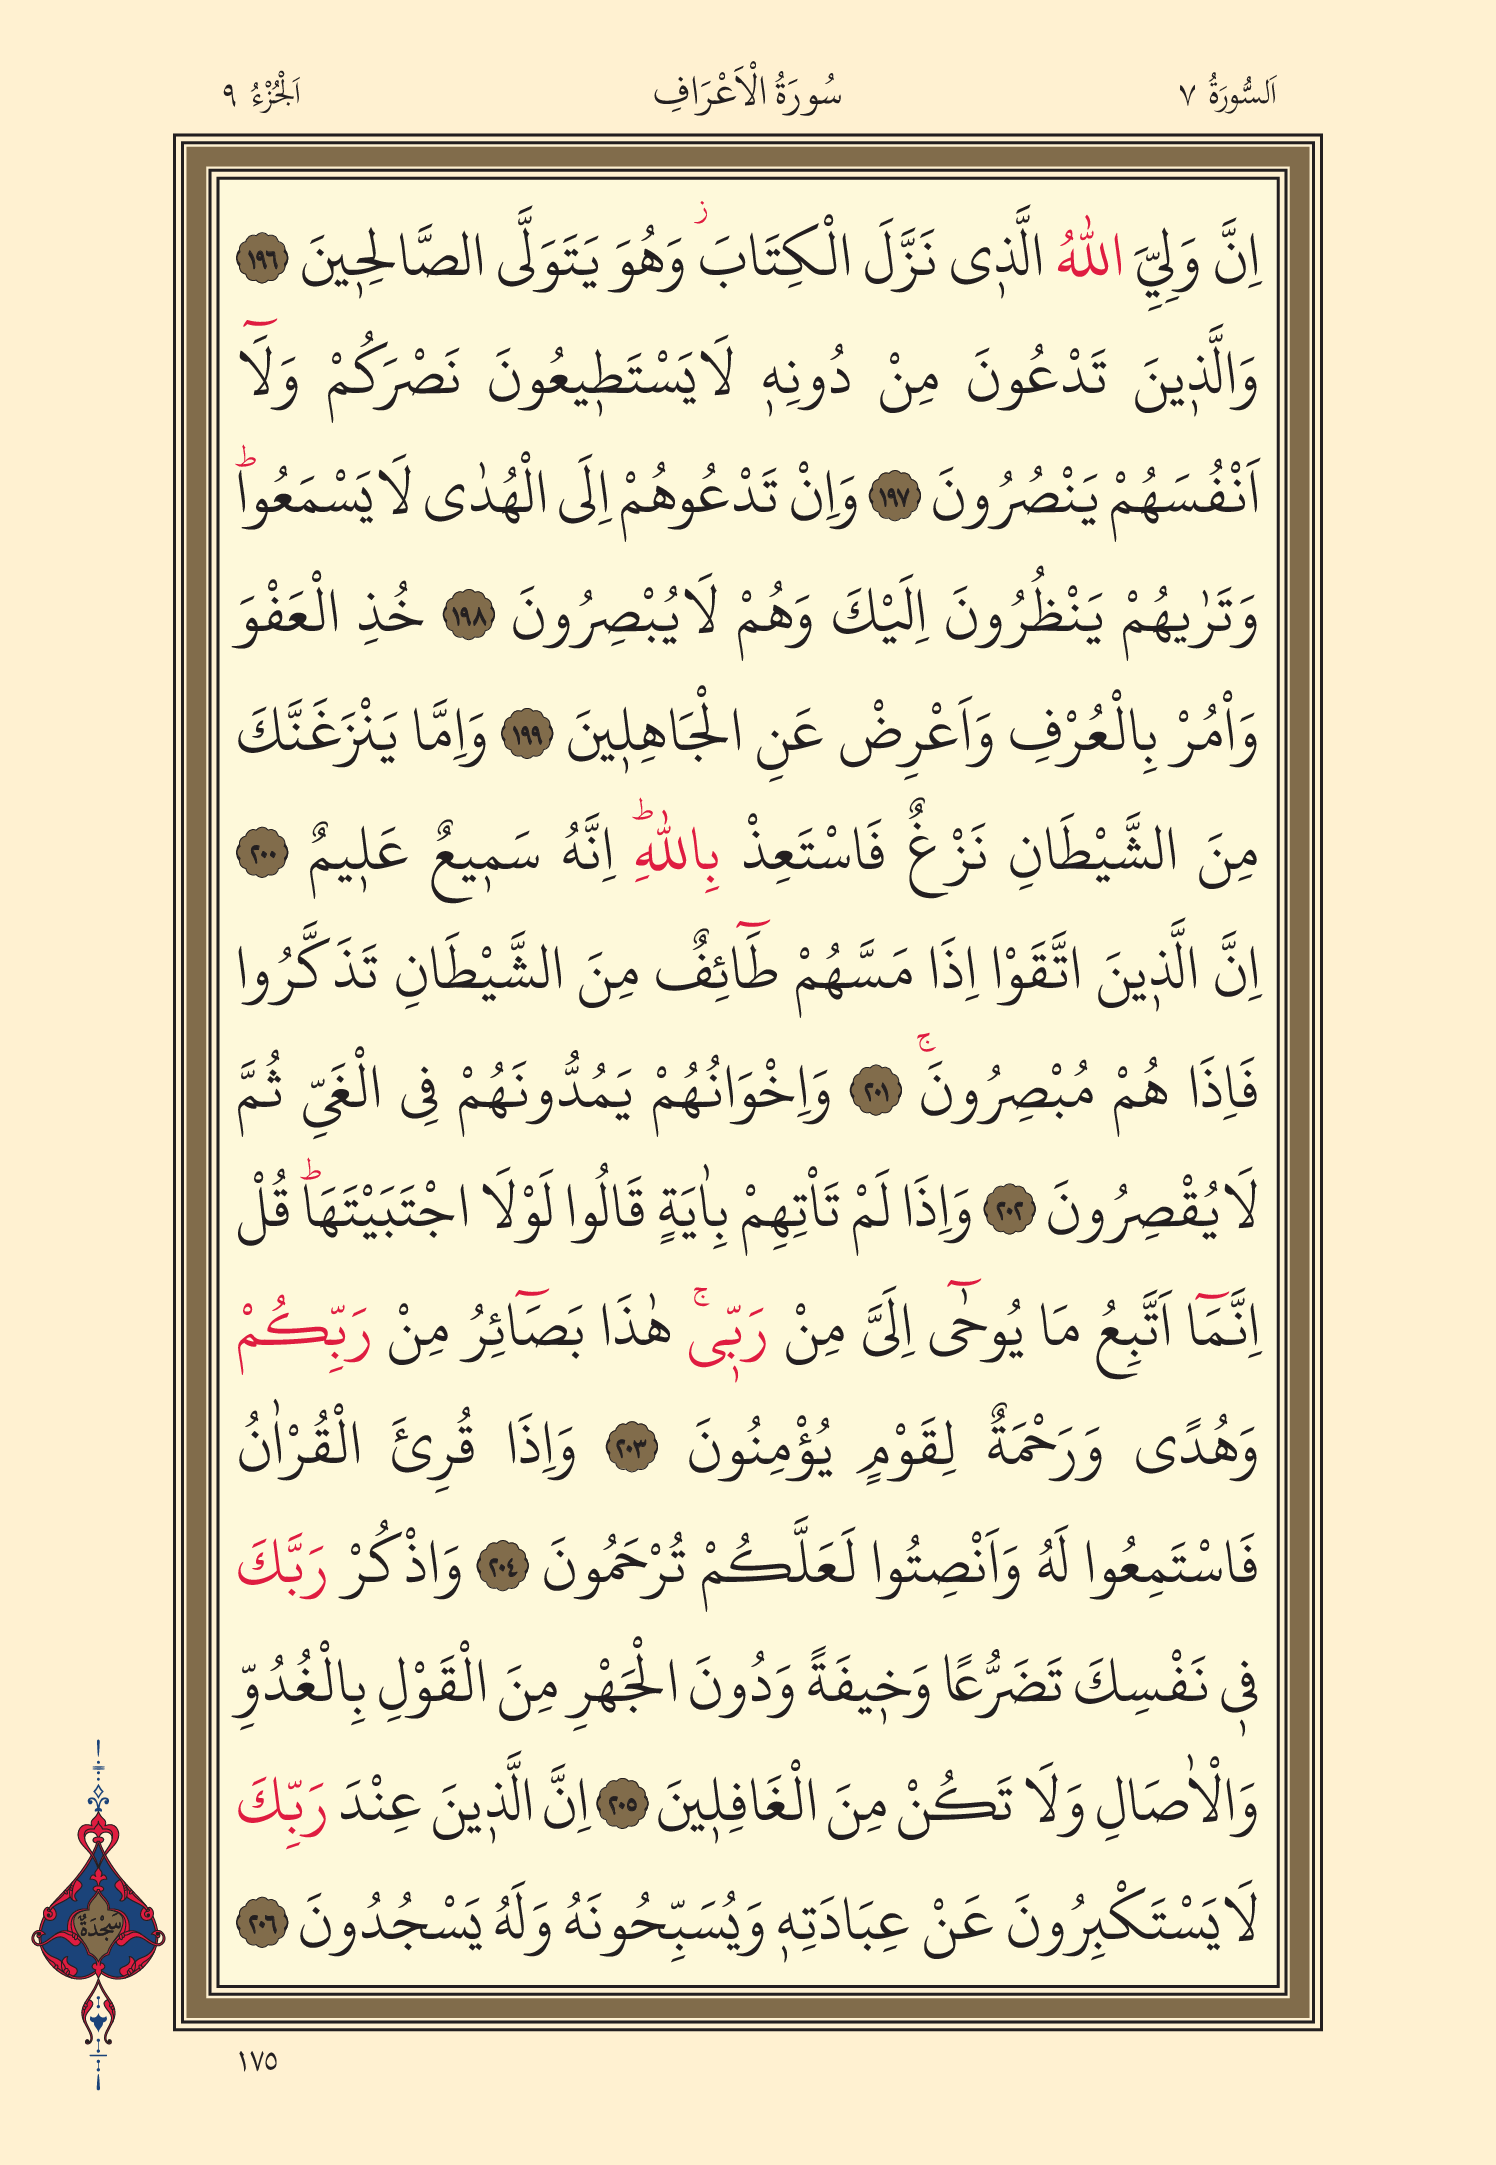 اَلسُّورَةُ ٧ سُورَةُ الْاَعْرَافِ اَلْجُزْءُ ٩
اِنَّ وَلِيِّيَ اللّٰهُ الَّذ۪ى نَزَّلَ الْكِتَابَۘ وَهُوَ يَتَوَلَّى الصَّالِح۪ينَ ١٩٦
وَالَّذ۪ينَ تَدْعُونَ مِنْ دُونِه۪ لَا يَسْتَط۪يعُونَ نَصْرَكُمْ وَلَٓا
اَنْفُسَهُمْ يَنْصُرُونَ ١٩٧ وَاِنْ تَدْعُوهُمْ اِلَى الْهُدٰى لَا يَسْمَعُواۜ
وَتَرٰيهُمْ يَنْظُرُونَ اِلَيْكَ وَهُمْ لَا يُبْصِرُونَ ١٩٨ خُذِ الْعَفْوَ
وَاْمُرْ بِالْعُرْفِ وَاَعْرِضْ عَنِ الْجَاهِل۪ينَ ١٩٩ وَاِمَّا يَنْزَغَنَّكَ
مِنَ الشَّيْطَانِ نَزْغٌ فَاسْتَعِذْ بِاللّٰهِۜ اِنَّهُ سَم۪يعٌ عَل۪يمٌ ٢٠٠
اِنَّ الَّذ۪ينَ اتَّقَوْا اِذَا مَسَّهُمْ طَٓائِفٌ مِنَ الشَّيْطَانِ تَذَكَّرُوا
فَاِذَا هُمْ مُبْصِرُونَۚ ٢٠١ وَاِخْوَانُهُمْ يَمُدُّونَهُمْ فِى الْغَيِّ ثُمَّ
لَا يُقْصِرُونَ ٢٠٢ وَاِذَا لَمْ تَاْتِهِمْ بِاٰيَةٍ قَالُوا لَوْلَا اجْتَبَيْتَهَاۜ قُلْ
اِنَّمَٓا اَتَّبِعُ مَا يُوحٰٓى اِلَيَّ مِنْ رَبّ۪ىۚ هٰذَا بَصَٓائِرُ مِنْ رَبِّكُمْ
وَهُدًى وَرَحْمَةٌ لِقَوْمٍ يُؤْمِنُونَ ٢٠٣ وَاِذَا قُرِئَ الْقُرْاٰنُ
فَاسْتَمِعُوا لَهُ وَاَنْصِتُوا لَعَلَّكُمْ تُرْحَمُونَ ٢٠٤ وَاذْكُرْ رَبَّكَ
ف۪ى نَفْسِكَ تَضَرُّعًا وَخ۪يفَةً وَدُونَ الْجَهْرِ مِنَ الْقَوْلِ بِالْغُدُوِّ
وَالْاٰصَالِ وَلَا تَكُنْ مِنَ الْغَافِل۪ينَ ٢٠٥ اِنَّ الَّذ۪ينَ عِنْدَ رَبِّكَ
لَا يَسْتَكْبِرُونَ عَنْ عِبَادَتِه۪ وَيُسَبِّحُونَهُ وَلَهُ يَسْجُدُونَ ٢٠٦
سَجْدَةٌ
١٧٥